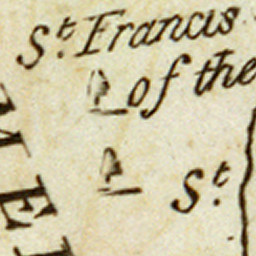 St. Francis
of the
St.
MEI